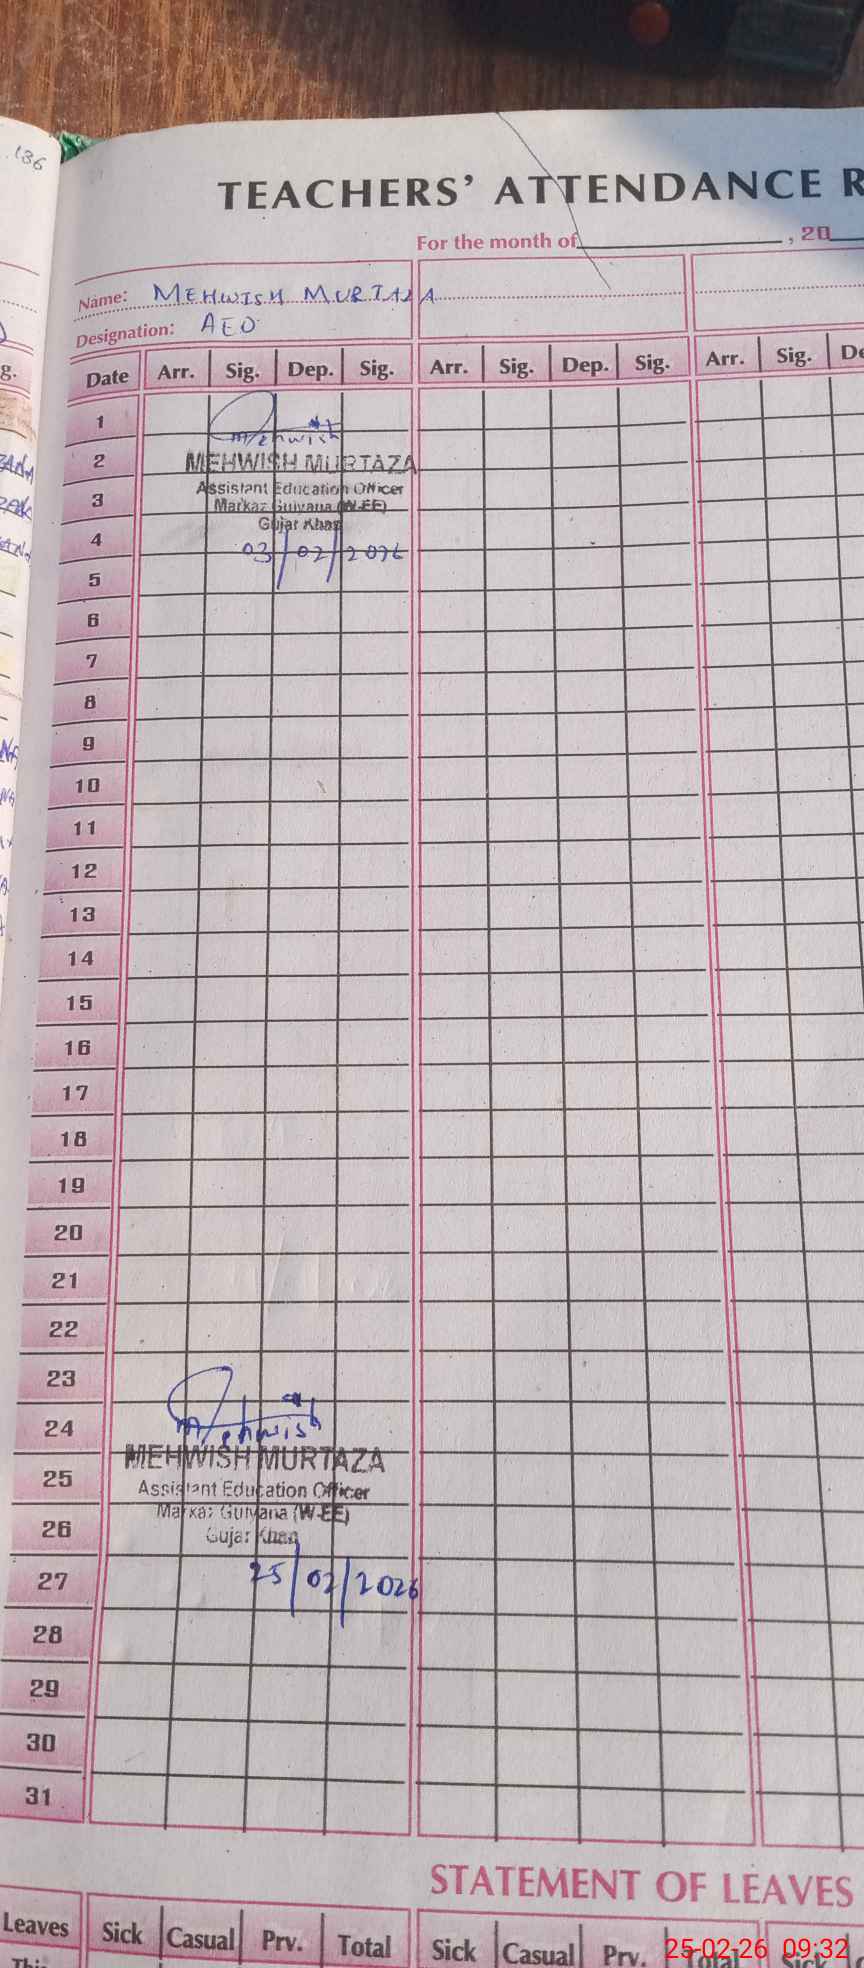 136
TEACHERS' ATTENDANCE R
For the month of , 20
Name: MEHWISH MURTAZA
Designation: AEO
g.
Date Arr. Sig. Dep. Sig. Arr. Sig. Dep. Sig. Arr. Sig. De
1
Mehwish
2 MEHWISH MURTAZA
3 Assistant Education Officer
Markaz Gulyana (W-EE)
Gujar Khan
4
03/02/2026
5
6
7
8
9
10
11
12
13
14
15
16
17
18
19
20
21
22
23
24
Mehwish
MEHWISH MURTAZA
25 Assistant Education Officer
Markaz Gulyana (W-EE)
26 Gujar Khan
27 25/02/2026
28
29
30
31
STATEMENT OF LEAVES
Leaves Sick Casual Prv. Total Sick Casual Prv. Total Sick
This
25-02-26 09:32